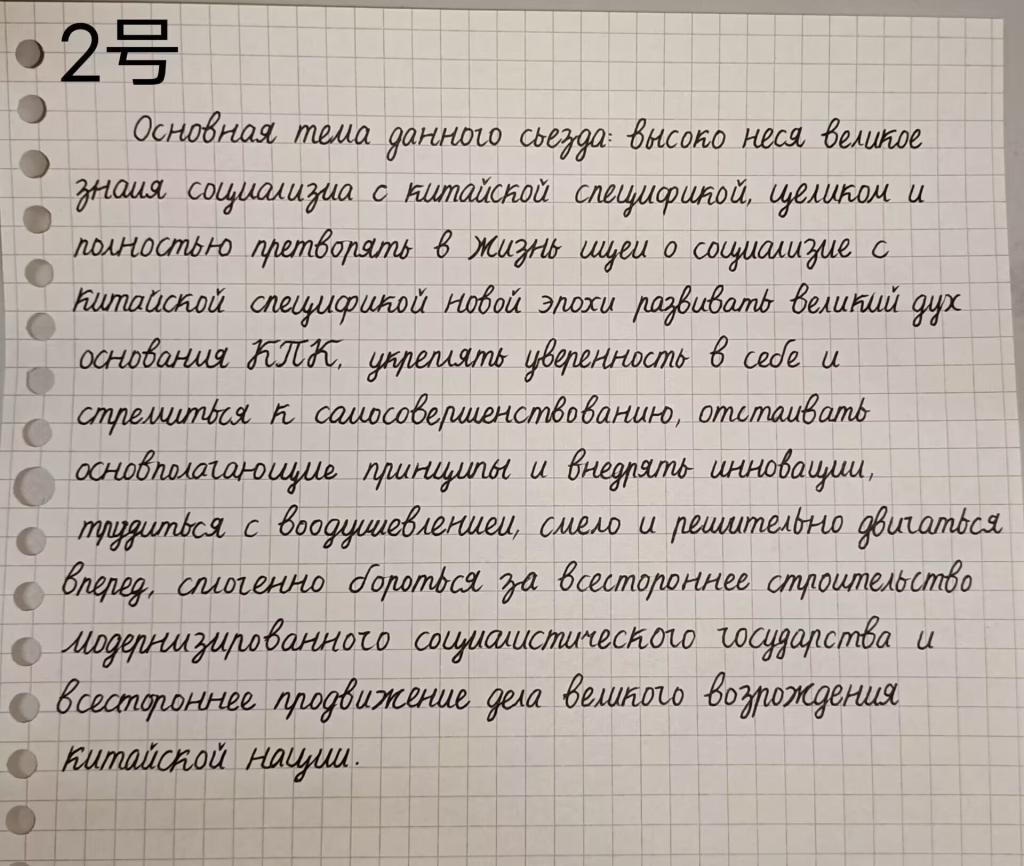 2号
Основная тема данного сьезда: высоко неся великое
знамя социализма с китайской спецификой, целиком и
полностью претворять в жизнь идеи о социализме с
китайской спецификой новой эпохи развивать великий дух
основания КПК, укреплять уверенность в себе и
стремиться к самосовершенствованию, отстаивать
основполагающие принципы и внедрять инновации,
трудиться с воодушевлением, смело и решительно двигаться
вперед, сплоченно бороться за всестороннее строительство
модернизированного социалистического государства и
всестороннее продвижение дела великого возрождения
китайской нации.